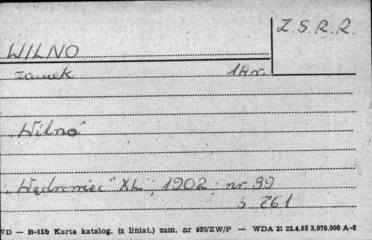 Z.S.R.R.
WILNO
zamek 1 kr.
"Wilno"
"Wędrowiec" XL, 1902, nr 39
s. 761
WD — B-15b Karta katalog. (z liniat.) zam. nr 957/ZW/P — WDA 21 22.4.65 3.070.000 A-6